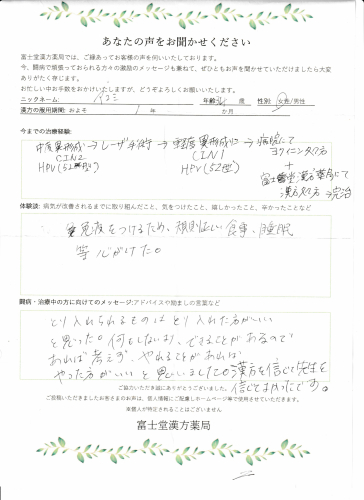 あなたの声をお聞かせください
富士堂漢方薬局では、ご縁あってお客様の声を伺いいたしております。
今、闘病で頑張っておられる方々の激励のメッセージも兼ねて、ぜひともお声を聞かせていただけましたら大変
ありがたく存じます。
お忙しい中お手数をおかけいたしますが、どうぞよろしくお願いいたします。
ニックネーム: 年齢 歳 性別: 女性/男性
漢方の服用期間: およそ 1 年 か月
今までの治療経験:
中度異形成→レーザー手術→軽度異形成→病院にて
CIN2 CIN1 ヨクイニン処方
HPV(52型) HPV(52型) +
富士堂漢方薬局にて
漢方処方→完治
体験談: 病気が改善されるまでに取り組んだこと、気をつけたこと、嬉しかったこと、辛かったことなど
免疫をつけるため、規則正しい食事、睡眠
等心がけた。
闘病・治療中の方に向けてのメッセージ:アドバイスや励ましの言葉など
とり入れられるものはとり入れた方がいい
と思った。何もしないより、できることがあるので
あれば考えず、やれることがあれば
やった方がいいと思いました。漢方を信じて先生を
信じてよかったです。
ご協力いただき誠にありがとうございました。
ご投稿いただきましたお客さまのお声は、個人情報にご配慮しホームページ等で使用させていただきます。
※個人が特定されることはございません
富士堂漢方薬局